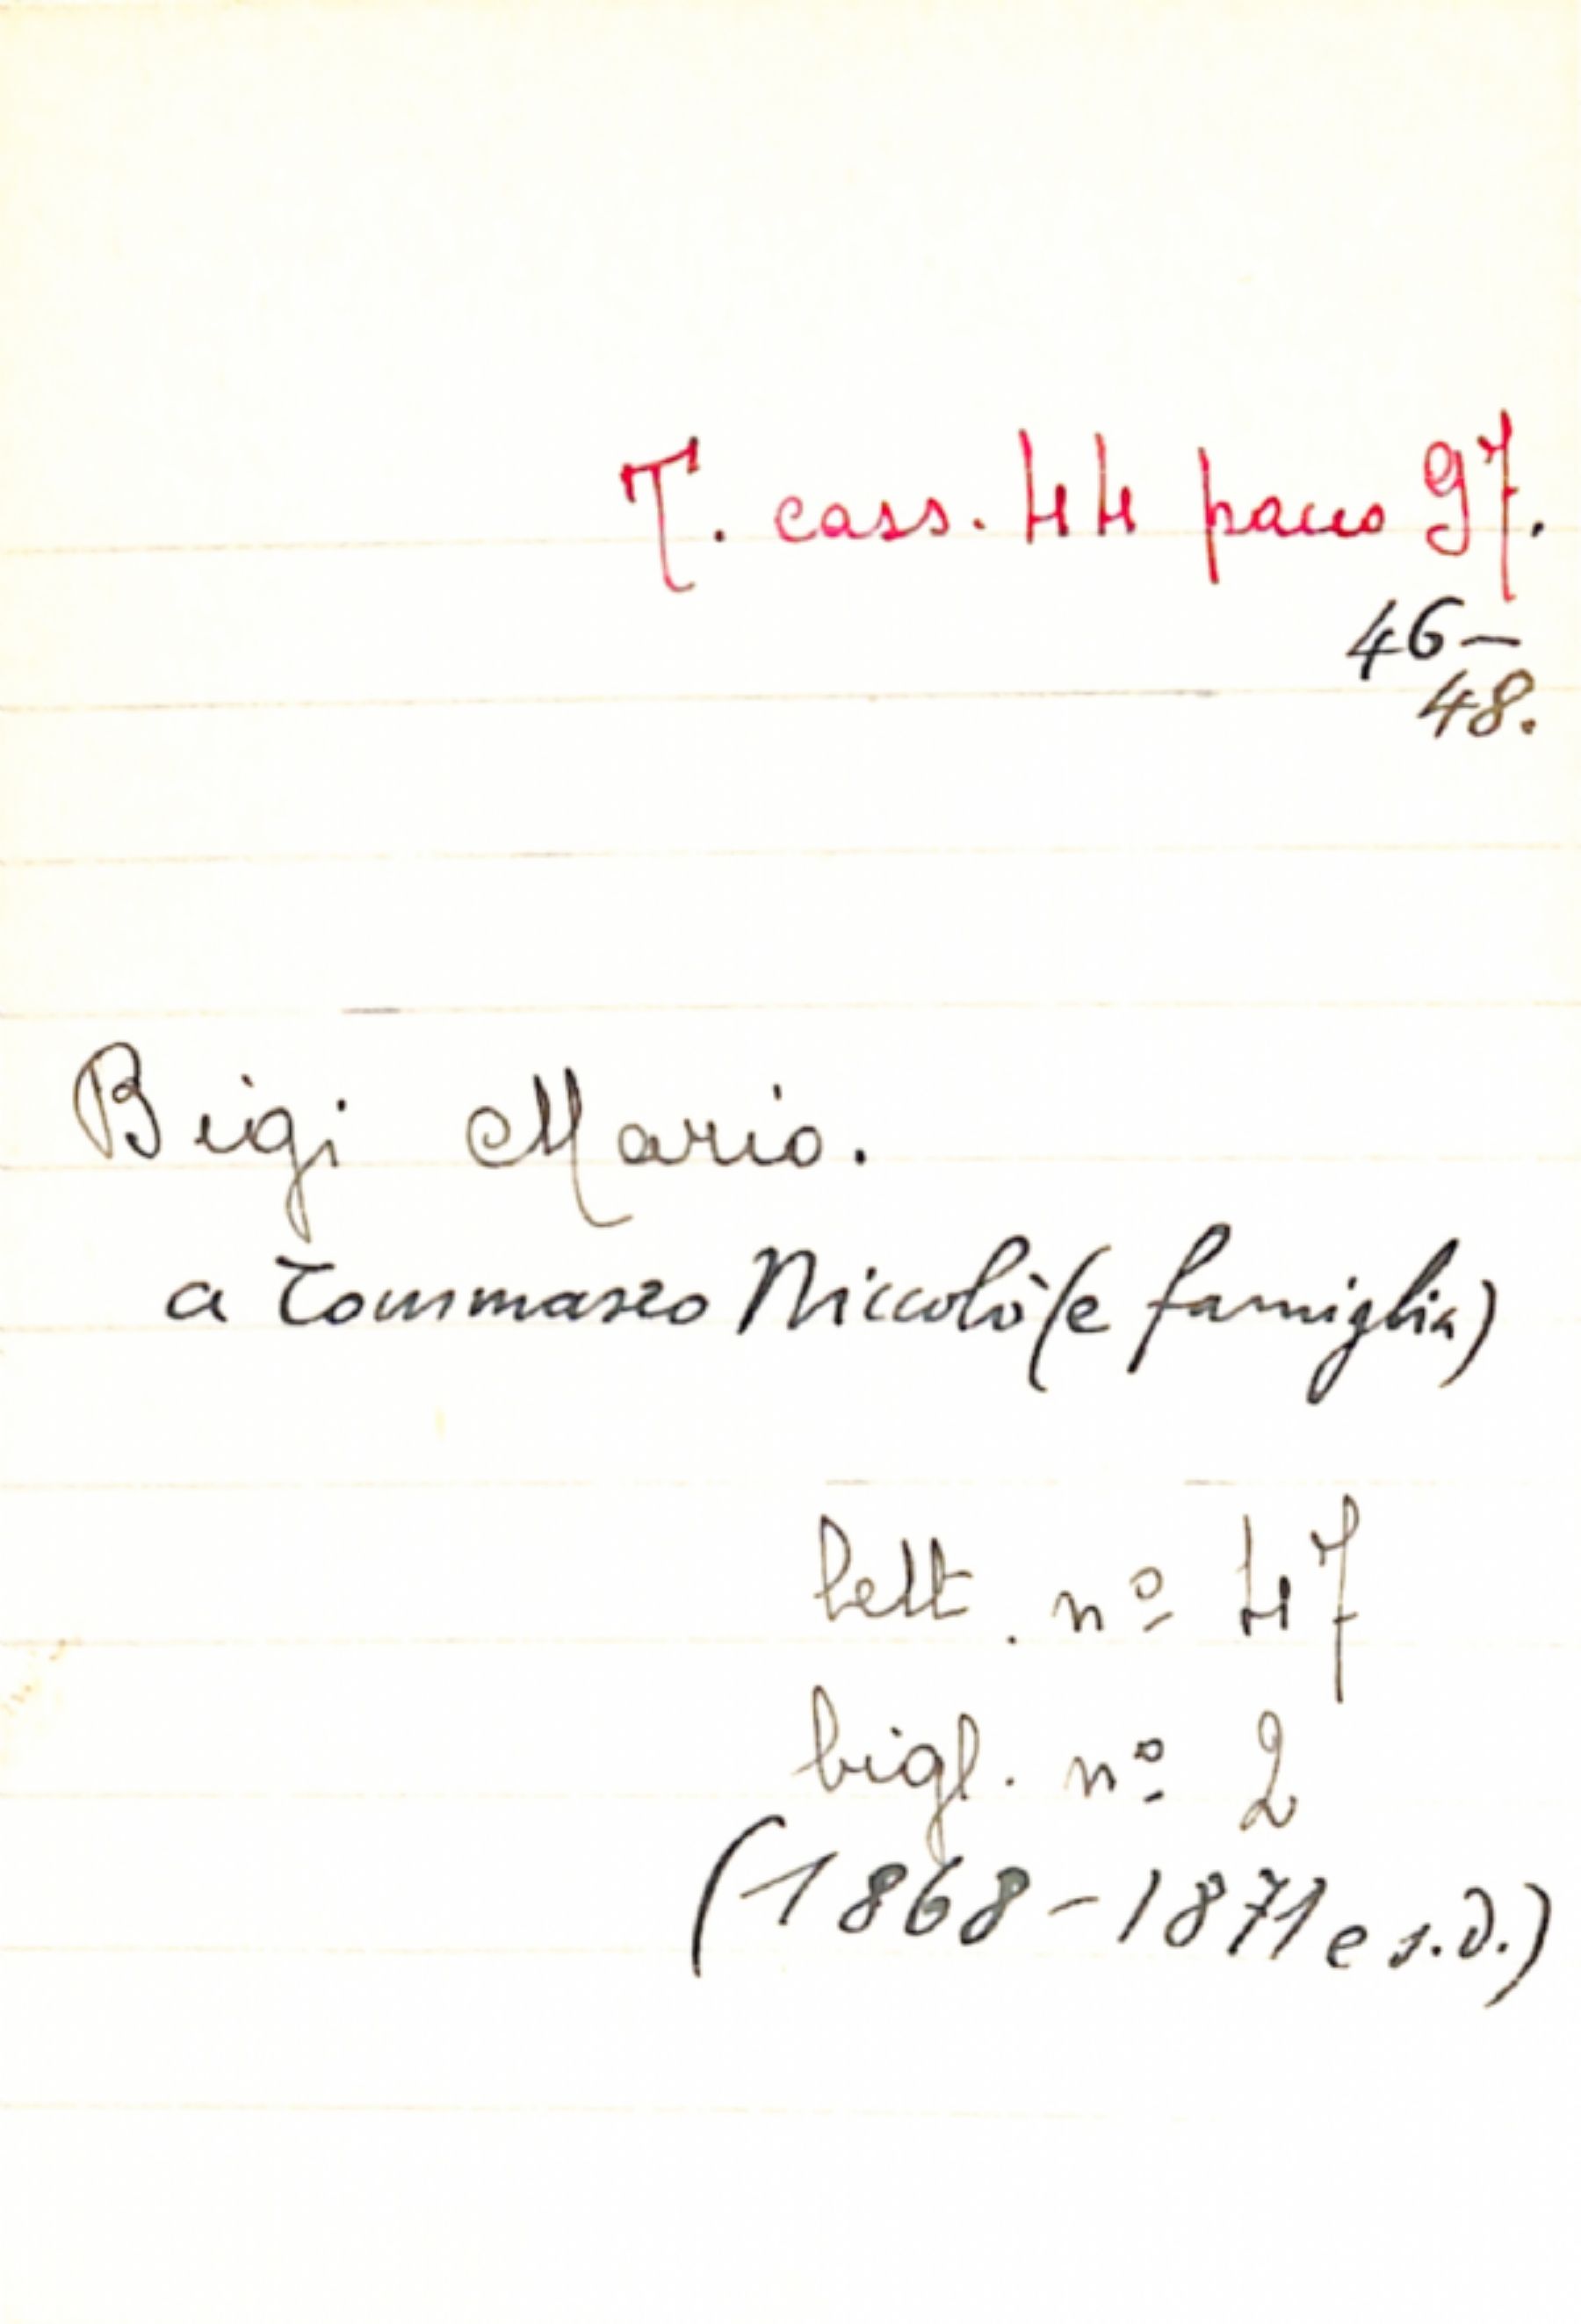 T. cass. 44 pacco 97.
46-
48.
Bigi Mario.
a Tommaseo Niccolò (e famiglia)
lett. nº 47
bigl. nº 2
(1868-1871 e s.d.)